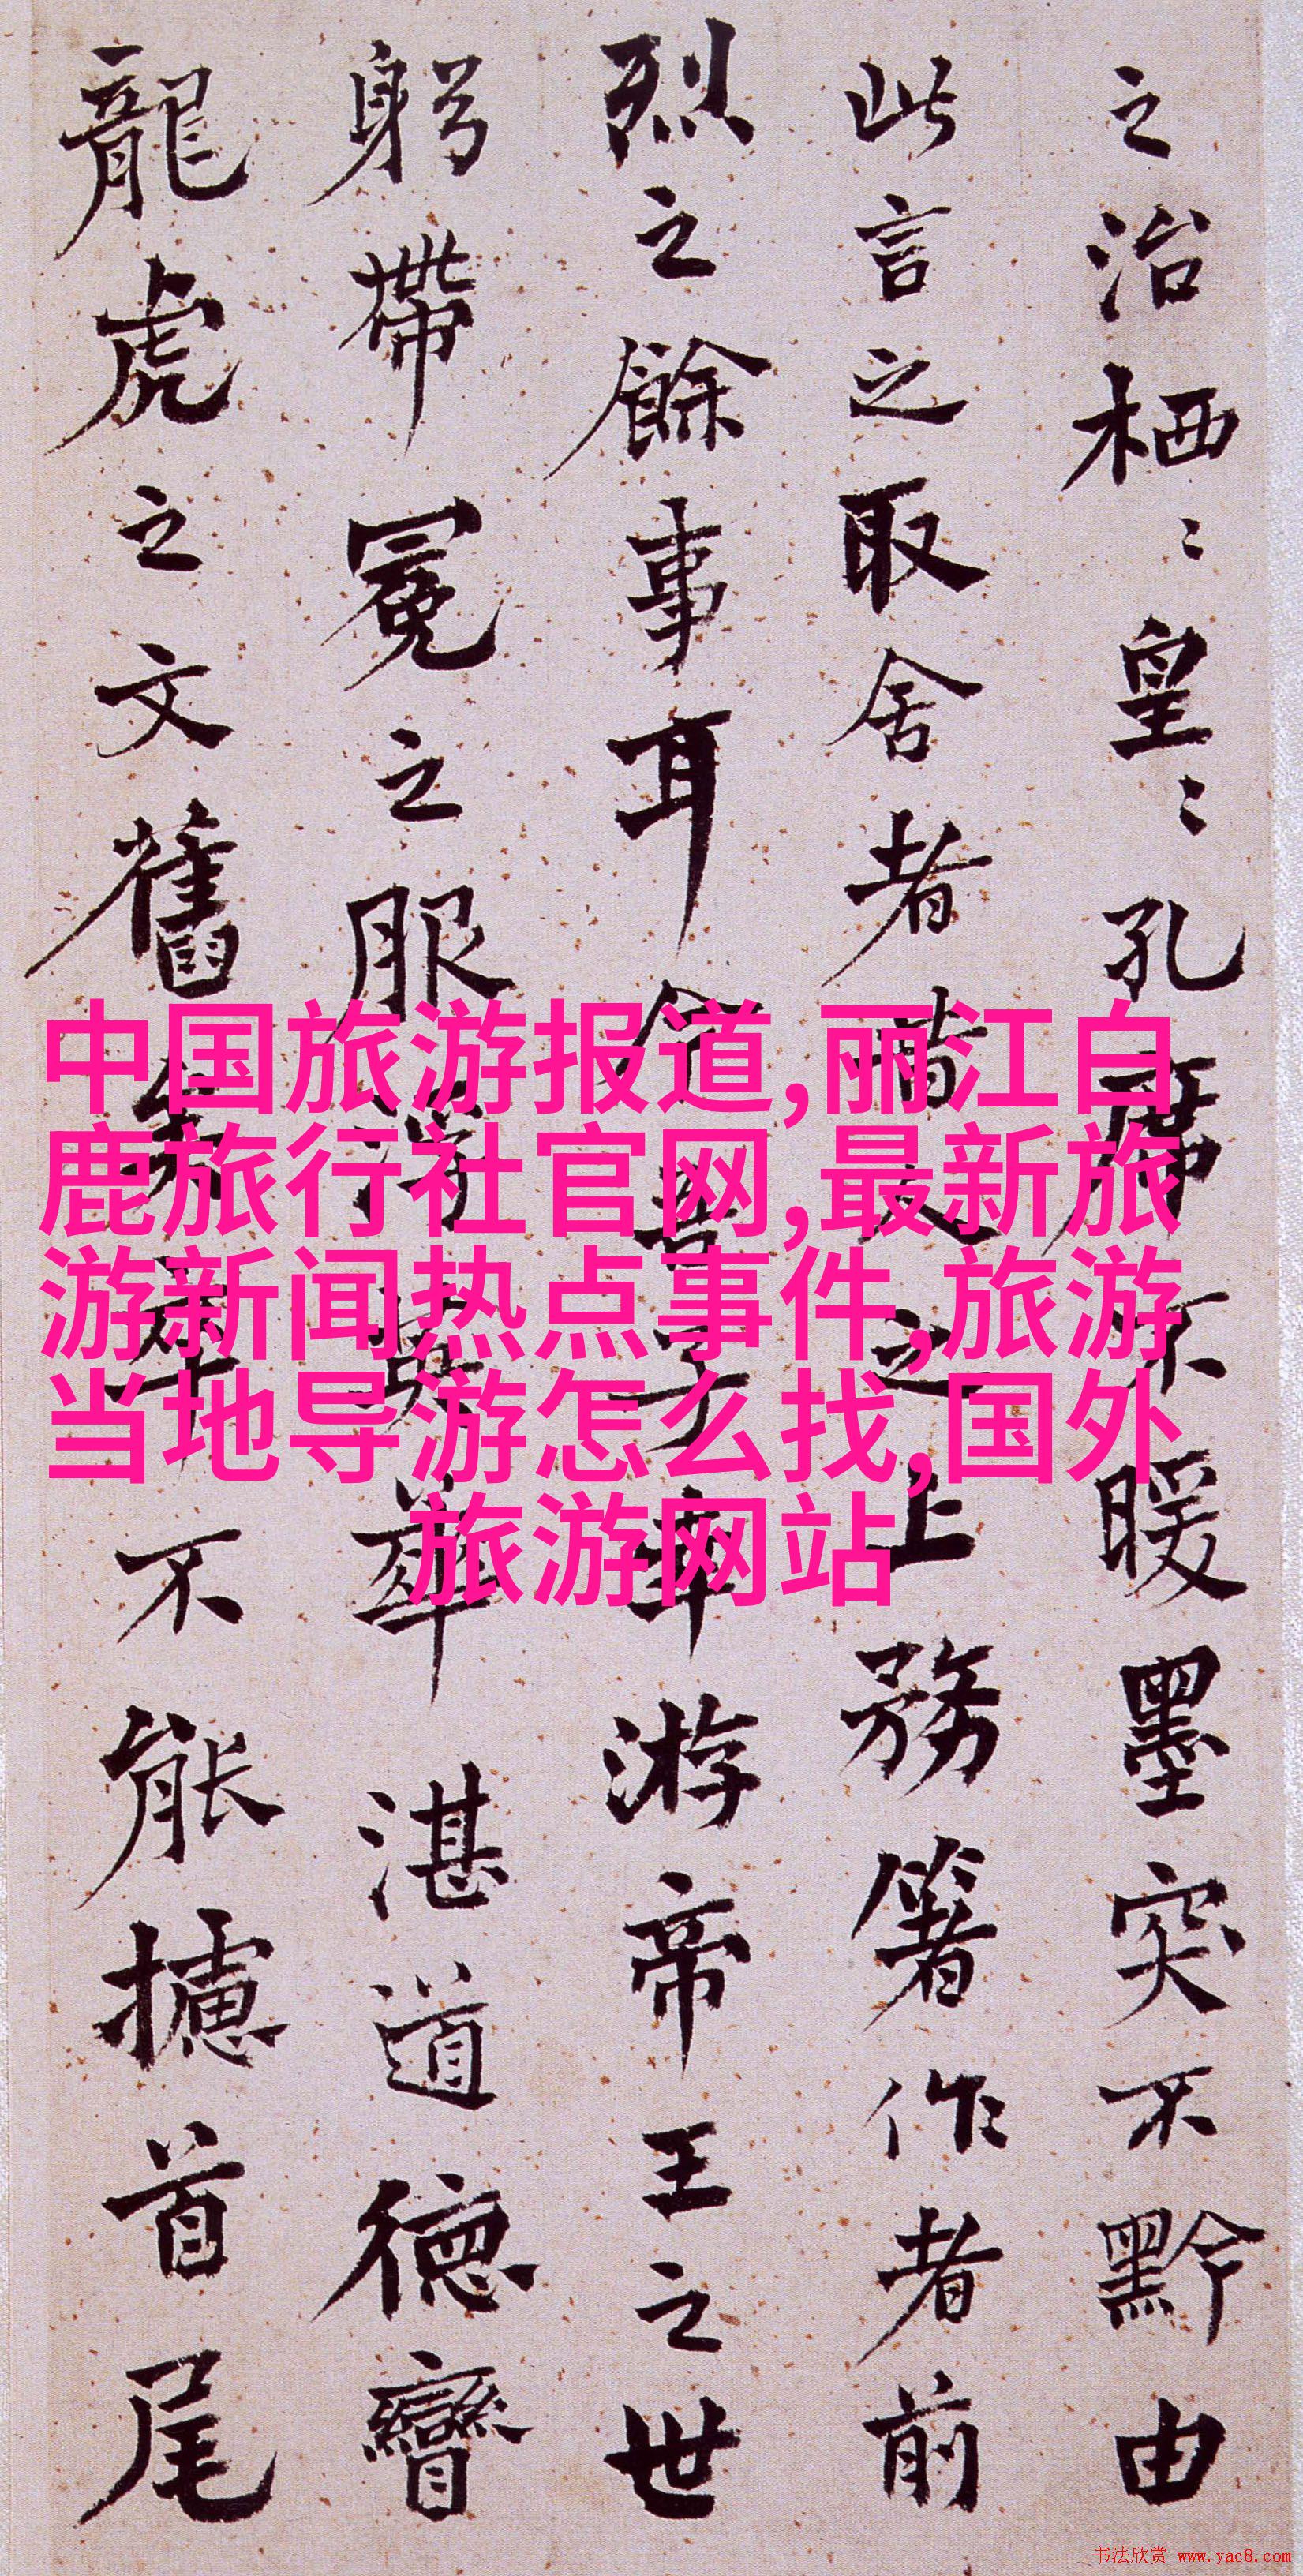 之治栖〻皇〻孔席不暖墨突不黔由
此言之取舍者昔人之上務箸作者前
烈之餘事耳今吾子幸游帝王之世
躬帶冕之服浮英華湛道德矕
龍虎之文舊矣卒不能攄首尾
中国旅游报道,丽江白
鹿旅行社官网,最新旅
游新闻热点事件,旅游
当地导游怎么找,国外
旅游网站
书法欣赏 www.yac8.com